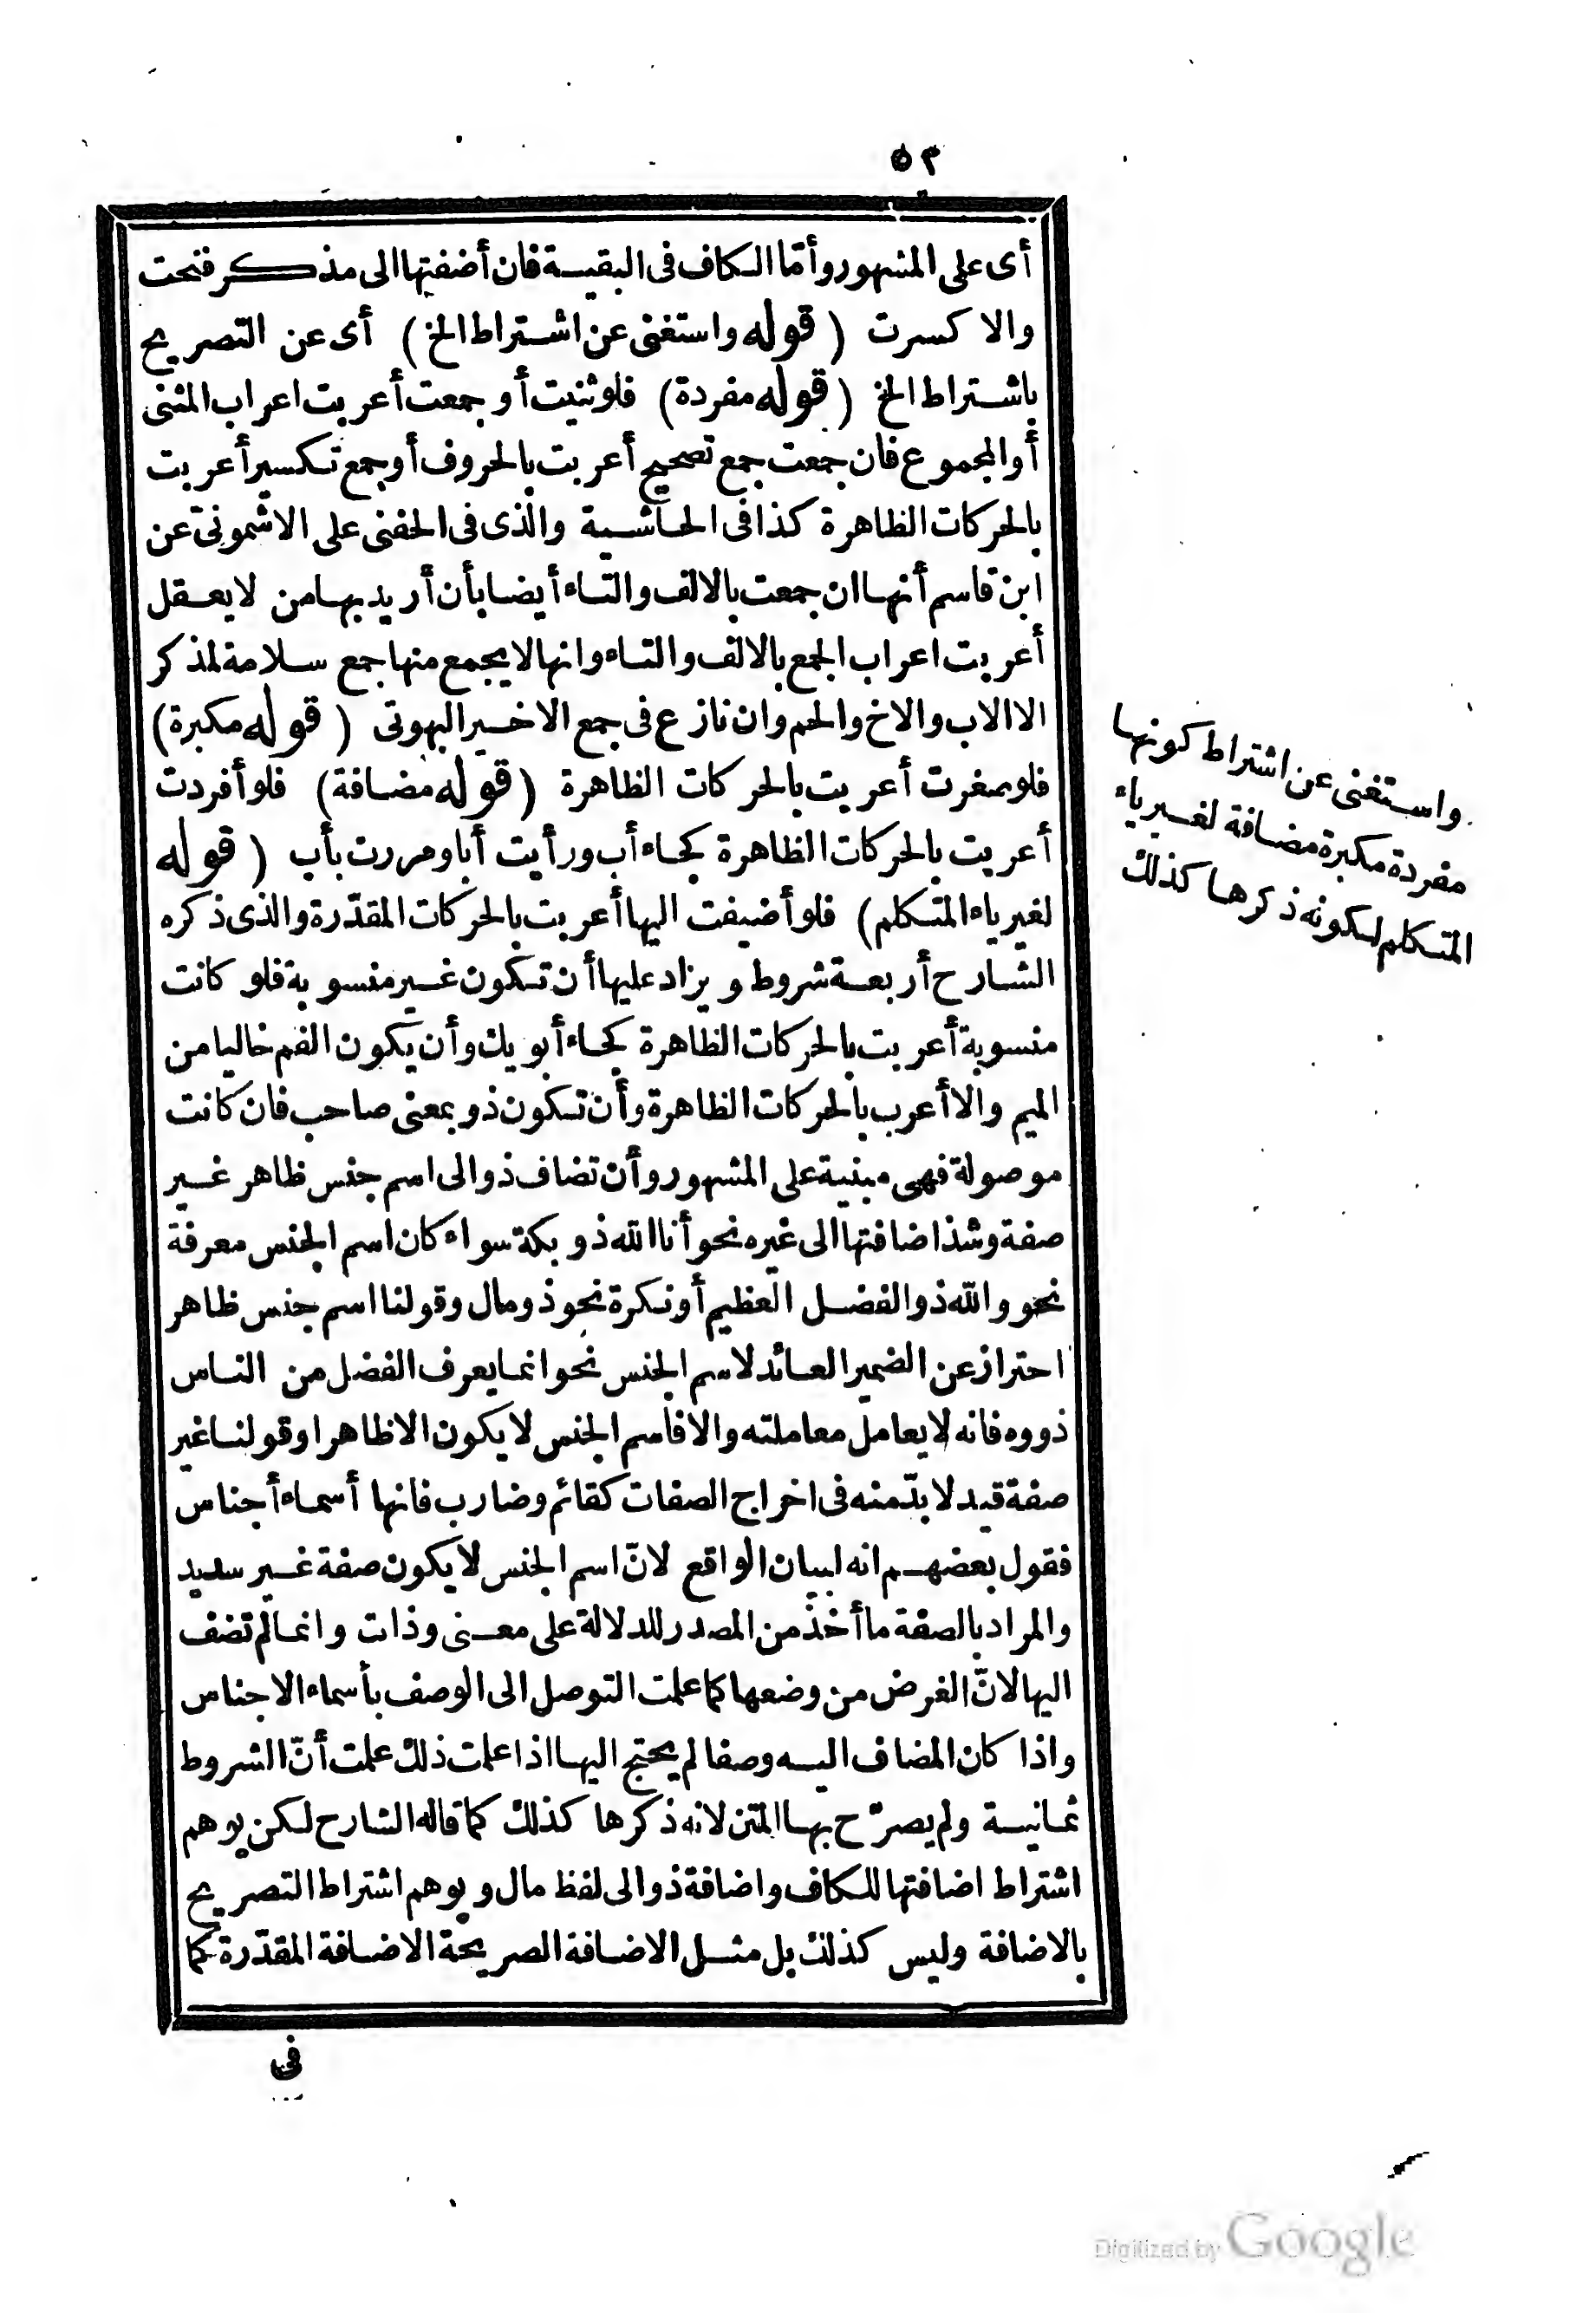 ٥٣
أى على المشهور وأمّا الكاف فى البقية فان أضفتها الى مذكر فتحت
والا كسرت (قوله واستغنى عن اشتراط الخ) أى عن التصريح
باشتراط الخ (قوله مفردة) فلو ثنيت أو جمعت أعربت اعراب المثنى
أو المجموع فان جمعت جمع تصحيح أعربت بالحروف أو جمع تكسير أعربت
بالحركات الظاهرة كذا فى الحاشية والذى فى الحفنى على الاشمونىّ عن
ابن قاسم أنها ان جمعت بالالف والتاء أيضا بأن أريد بها من لا يعقل
أعربت اعراب الجمع بالالف والتاء وانها لا يجمع منها جمع سلامة لمذكر
الا الاب والاخ والحم وان نازع فى جمع الاخير البهوتى (قوله مكبرة)
فلو صغرت أعربت بالحركات الظاهرة (قوله مضافة) فلو أفردت
أعربت بالحركات الظاهرة كجاء أب ورأيت أبا ومررت بأب (قوله
لغير ياء المتكلم) فلو أضيفت اليها أعربت بالحركات المقدّرة والذى ذكره
الشارح أربعة شروط ويزاد عليها أن تكون غير منسوبة فلو كانت
منسوبة أعربت بالحركات الظاهرة كجاء أبويك وأن يكون الفم خاليا من
الميم والا أعرب بالحركات الظاهرة وأن تكون ذو بمعنى صاحب فان كانت
موصولة فهى مبنية على المشهور وأن تضاف ذو الى اسم جنس ظاهر غير
صفة وشذ اضافتها الى غيره نحو أنا الله ذو بكة سواء كان اسم الجنس معرفة
نحو والله ذو الفضل العظيم أو نكرة نحو ذو مال وقولنا اسم جنس ظاهر
احتراز عن الضمير العائد لاسم الجنس نحو انما يعرف الفضل من الناس
ذووه فانه لا يعامل معاملته والا فاسم الجنس لا يكون الا ظاهرا وقولنا غير
صفة قيد لا بدّ منه فى اخراج الصفات كقائم وضارب فانها أسماء أجناس
فقول بعضهم انه لبيان الواقع لانّ اسم الجنس لا يكون صفة غير سديد
والمراد بالصفة ما أخذ من المصدر للدلالة على معنى وذات وانما لم تضف
اليها لانّ الغرض من وضعها كما علمت التوصل الى الوصف بأسماء الاجناس
واذا كان المضاف اليه وصفا لم يحتج اليها اذا علمت ذلك علمت أنّ الشروط
ثمانية ولم يصرّح بها المتن لانه ذكرها كذلك كما قاله الشارح لكن يوهم
اشتراط اضافتها للكاف واضافة ذو الى لفظ مال ويوهم اشتراط التصريح
بالاضافة وليس كذلك بل مثل الاضافة الصريحة الاضافة المقدّرة كما
فى
واستغنى عن اشتراط كونها
مفردة مكبرة مضافة لغير ياء
المتكلم لكونه ذكرها كذلك
Digitized by Google